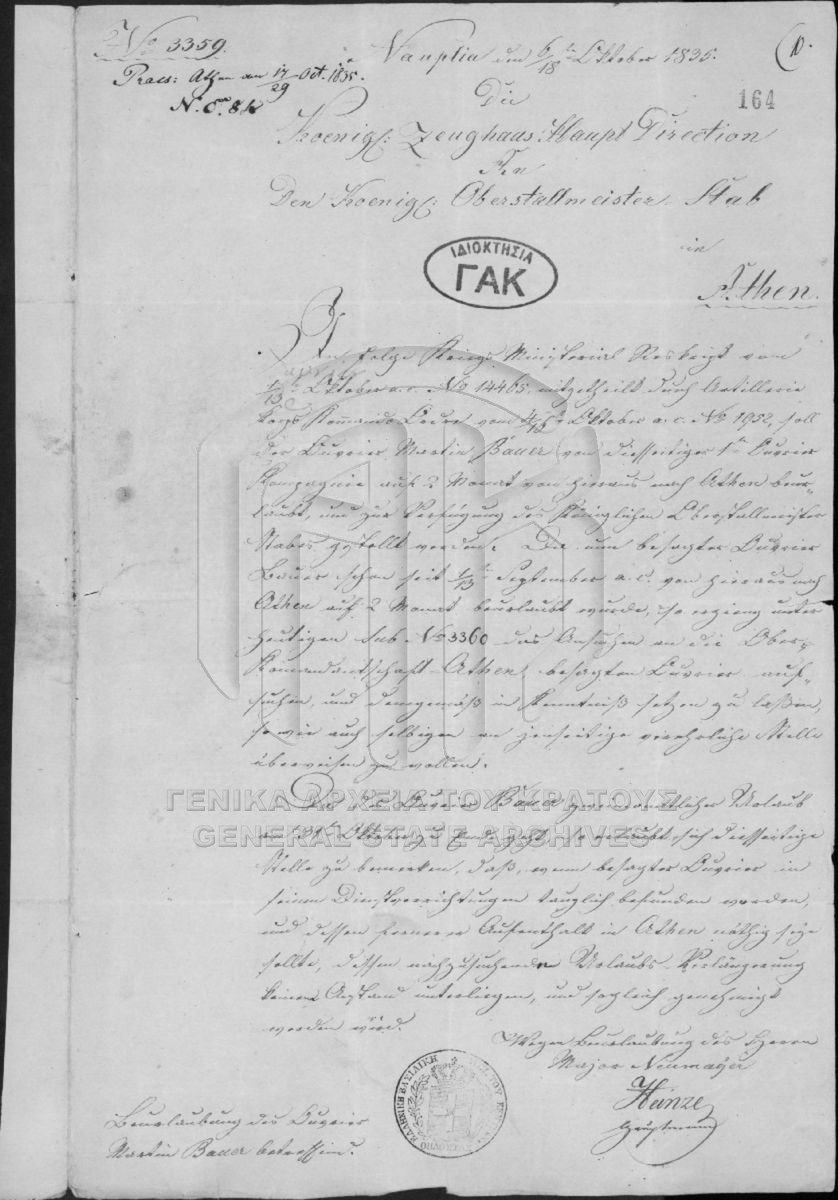 No 3359.
Praes: Athen am 17/29 Oct. 1835.
N. C. 84
Nauplia den 6/18ten Oktober 1835.
10.
164
Die
Koenigl: Zeughaus Haupt Direction
An
Den Koenigl: Oberstallmeister Stab
in
Athen.
ΙΔΙΟΚΤΗΣΙΑ
ΓΑΚ
In Folge Kriegs Ministerial Reskript vom
1/13ten Oktober a. c. No 14465, mitgetheilt durch Artillerie
Corps Komando Ordre vom Oktober a. c. No 1952, soll
der Ouvrier Martin Bauer von diesseitiger 1ten Ouvrier
Kompagnie auf 2 Monat von hieraus nach Athen beur-
laubt, und zur Verfügung des Königlichen Oberstallmeister
Stabes gestellt werden. Da nun besagter Ouvrier
Bauer schon seit 1/13ten September a. c. von hieraus nach
Athen auf 2 Monat beurlaubt wurde, so erging unter
heutigem sub No 3360 das Ansuchen an die Ober-
Komandantschaft Athen, besagten Ouvrier auf-
suchen, und demgemäß in Kenntniß setzen zu laßen,
so wie auch selbigen an jenseitige verehrliche Stelle
überweisen zu wollen.
ΓΕΝΙΚΑ ΑΡΧΕΙΑ ΤΟΥ ΚΡΑΤΟΥΣ
GENERAL STATE ARCHIVES
Da des Ouvrier Bauer zweimonatlicher Urlaub
am 31ten Oktober zu Ende geht, so erlaubt sich diesseitige
Stelle zu bemerken, daß, wenn besagter Ouvrier in
seinen Dienstverrichtungen tauglich befunden worden,
und dessen fernerer Aufenthalt in Athen nöthig seyn
sollte, dessen nachzusuchende Urlaubs-Verlängerung
keinem Anstand unterliegen, und sogleich genehmigt
werden wird.
Wegen Beurlaubung des Herrn
Major Neumayer
Hünze
Hauptmann
ΕΛΛΗΝΙΚΗ ΒΑΣΙΛΙΚΗ
Beurlaubung des Ouvrier
Martin Bauer betreffend.